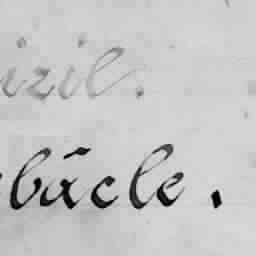 izil.
bâcle.